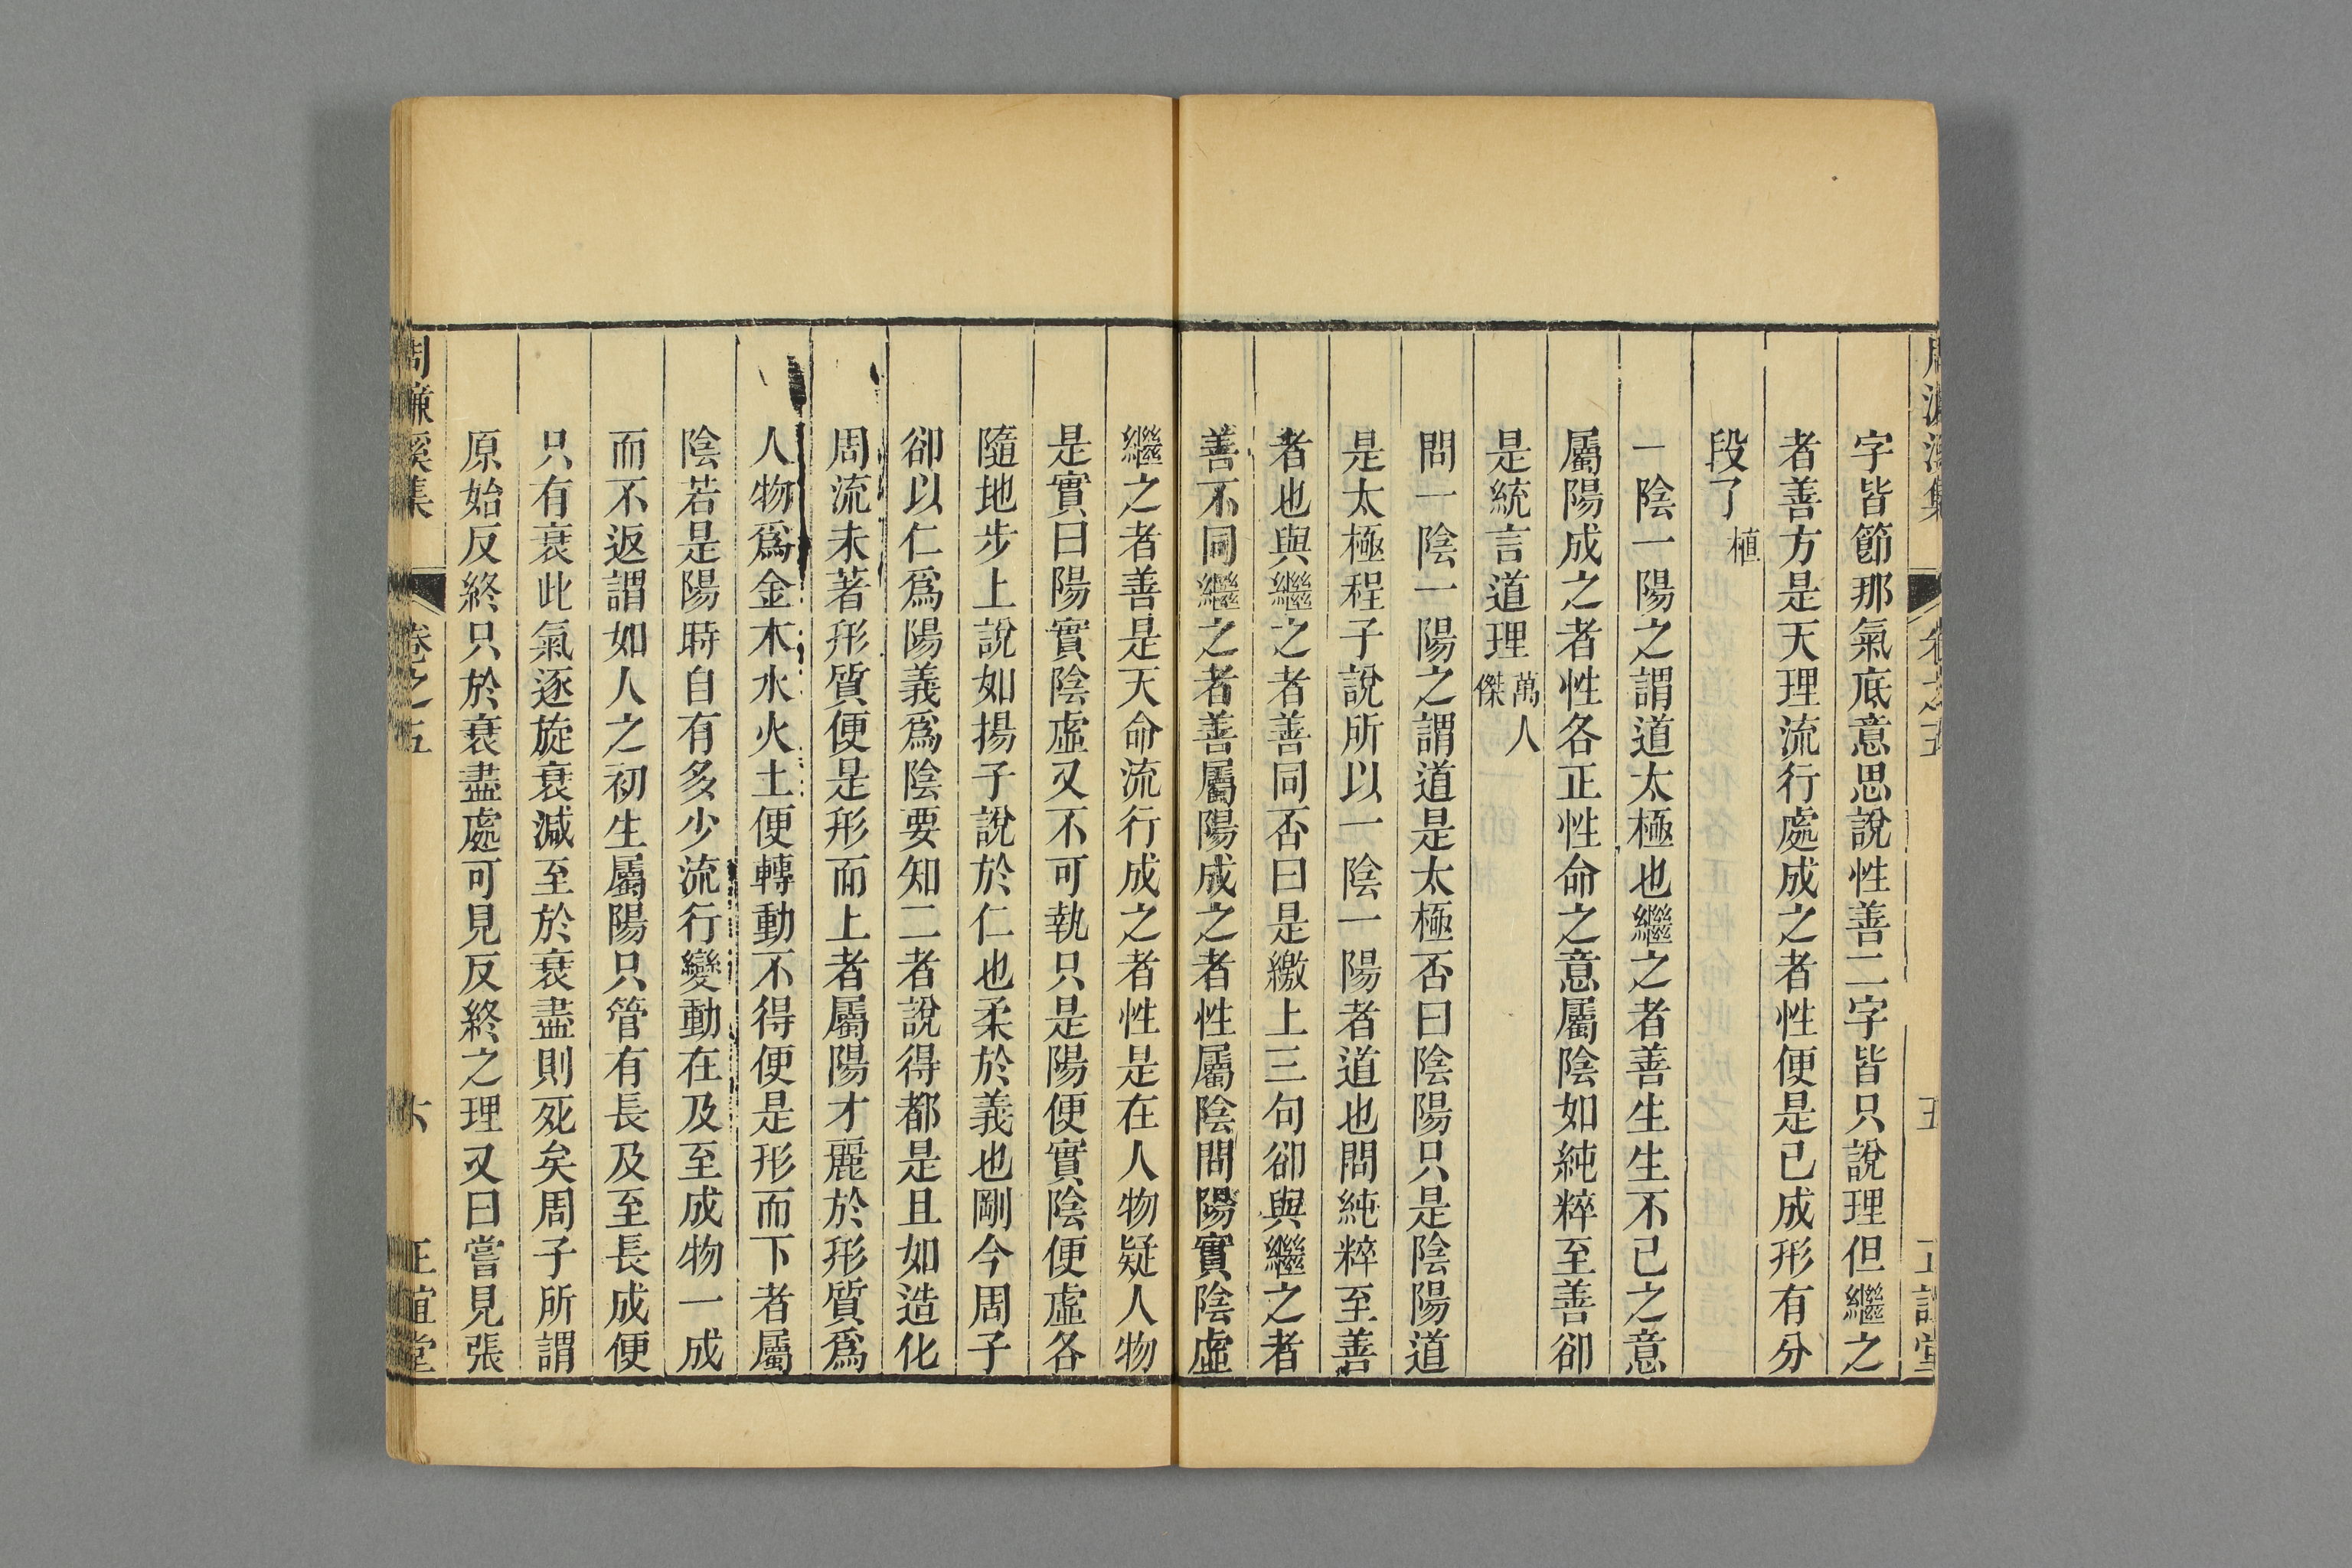 字皆節那氣底意思說性善二字皆只說理但繼之
者善方是天理流行處成之者性便是已成形有分
段了植
一陰一陽之謂道太極也繼之者善生生不已之意
屬陽成之者性各正性命之意屬陰如純粹至善卻
是統言道理萬人傑
問一陰一陽之謂道是太極否曰陰陽只是陰陽道
是太極程子說所以一陰一陽者道也問純粹至善
者也與繼之者善同否曰是繳上三句卻與繼之者
善不同繼之者善屬陽成之者性屬陰問陽實陰虛
繼之者善是天命流行成之者性是在人物疑人物
是實曰陽實陰虛又不可執只是陽便實陰便虛各
隨地步上說如揚子說於仁也柔於義也剛今周子
卻以仁爲陽義爲陰要知二者說得都是且如造化
周流未著形質便是形而上者屬陽才麗於形質爲
人物爲金木水火土便轉動不得便是形而下者屬
陰若是陽時自有多少流行變動在及至成物一成
而不返謂如人之初生屬陽只管有長及至長成便
只有衰此氣逐旋衰減至於衰盡則死矣周子所謂
原始反終只於衰盡處可見反終之理又曰嘗見張
周濂溪集
卷之五
六
正誼堂